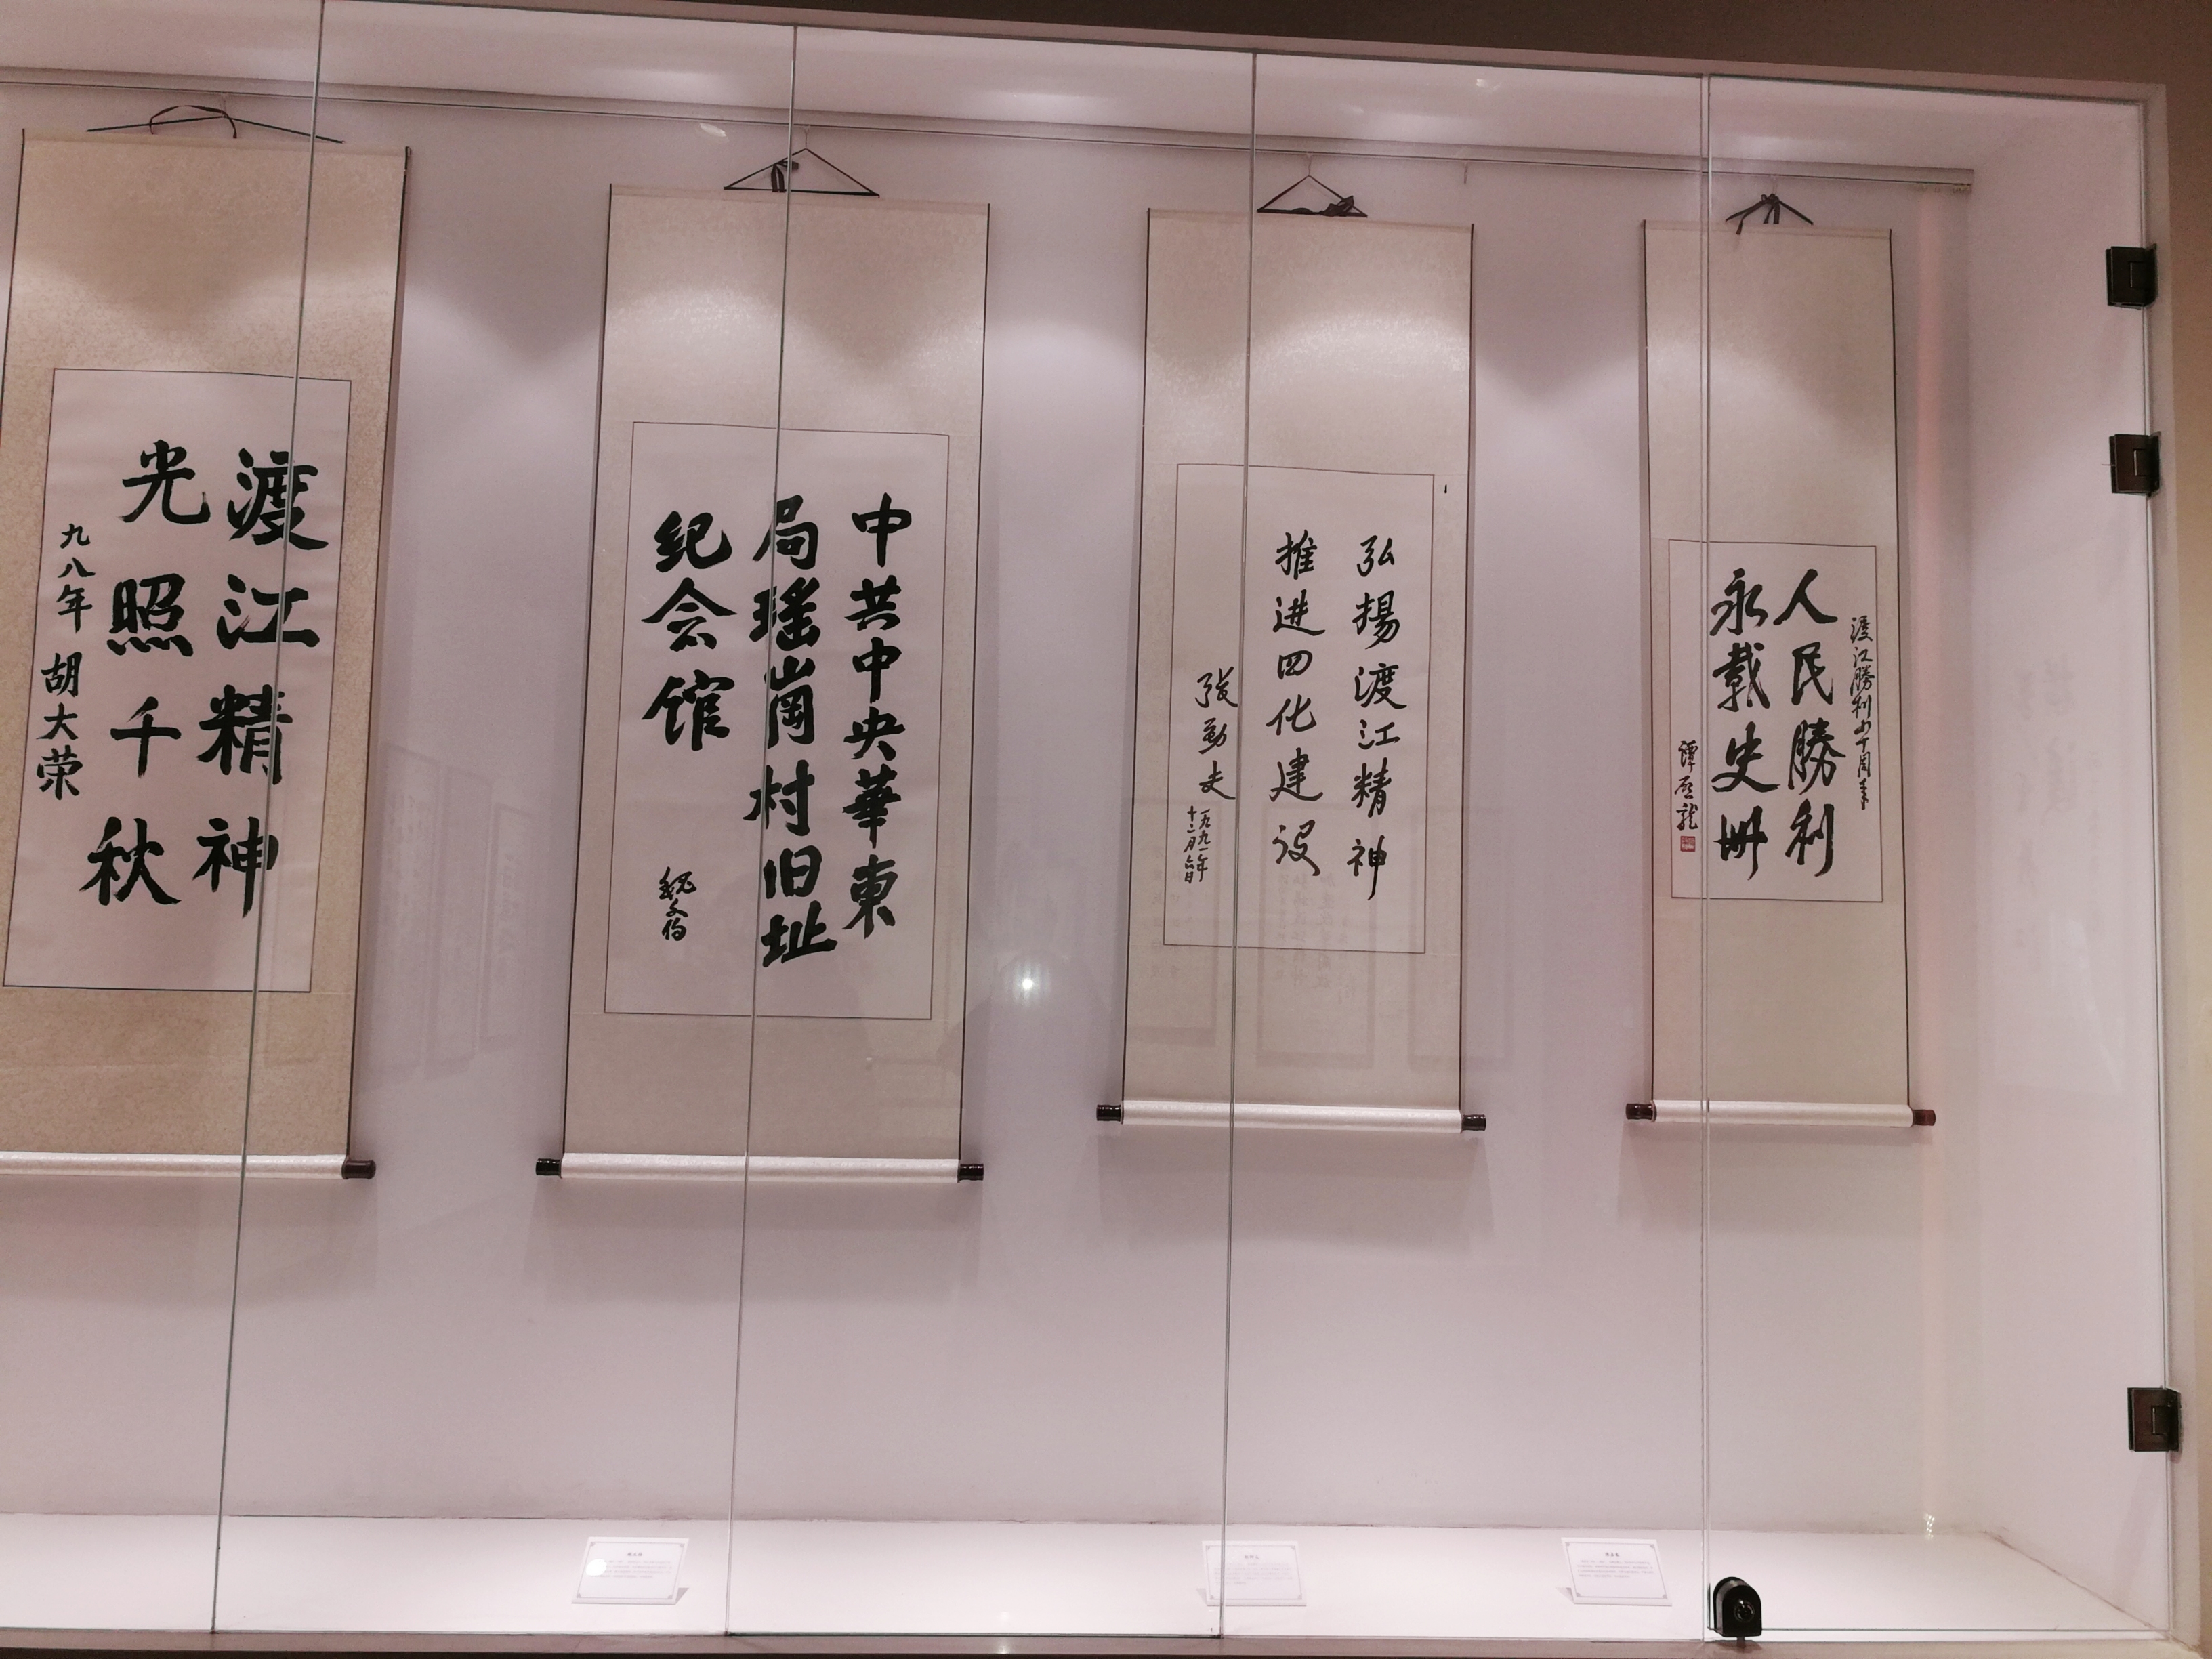 渡江勝利四十周年
人民勝利
永載史册
譚啓龍
弘揚渡江精神
推进四化建设
張勁夫
一九九一年
十二月六日
中共中央華東
局瑤崗村旧址
纪念馆
魏文伯
渡江精神
光照千秋
九八年 胡大荣